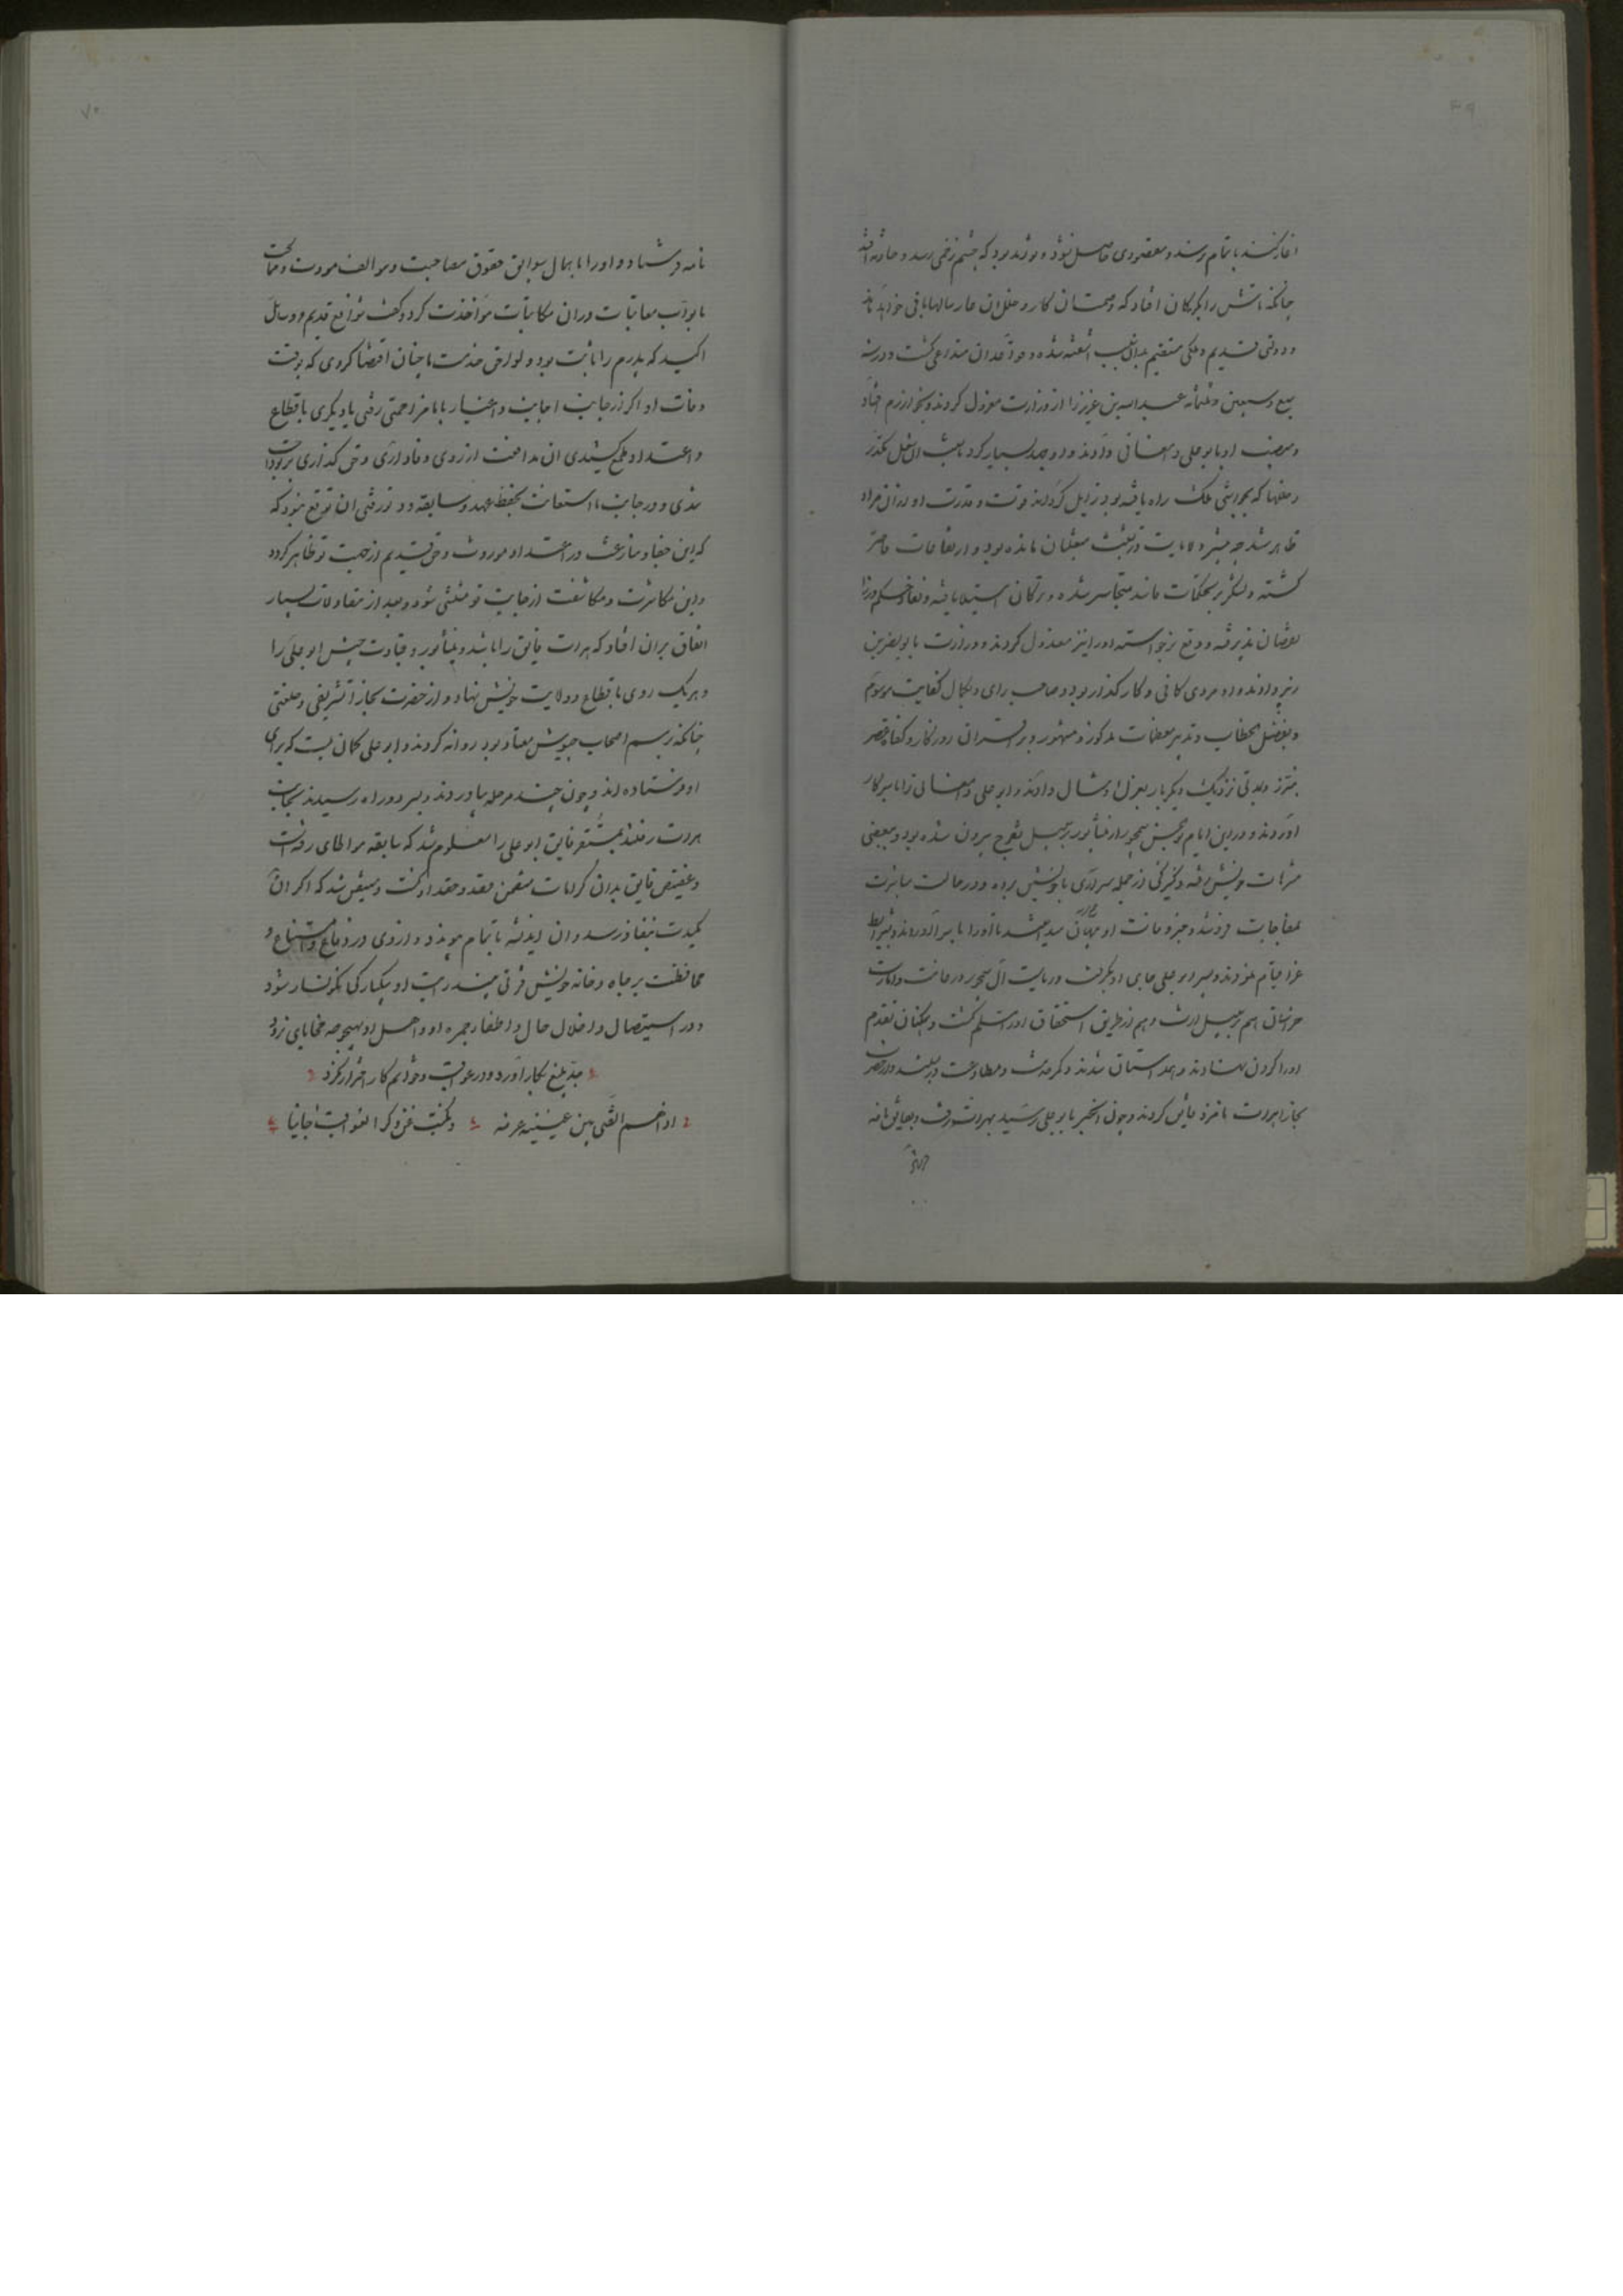 ۴۹
آغاز کنند باتمام رسد و مقصودی حاصل نشود و تواند بود که چشم زخمی رسد و حادثه افتد
چنانکه تاش را بکرکان افتاد که و خلل آن عار سالها باقی خواهد ماند
و دولتی قدیم و ملکی مستقیم بدان سبب آشفته شده و قواعد آن متداعی کشت و در سنه
سبع و سبعین و ثلثمائه عبدالله بن عزیز را از وزارت معزول کردند و بخوارزم فرستاد
و منصب او بابو علی دامغانی دادند و او جهد بسیار کرد تا
و خللها که بحواشی ملک راه یافته بود زایل کرداند قوت و قدرت او از آن
ظاهر شد چه بیشتر ولایت در تشبث متغلبان مانده بود و ارتفاعات قاصر
کشته و لشکر بر تحکمات متجاسر شده و ترکان استیلا یافته و نفاذ حکم وزرا
نقصان پذیرفته و وقع برخواسته او را نیز معزول کردند و وزارت بابو نصر بن
زید دادند و او مردی کافی و کارکذار بود و صاحب رای و بکمال کفایت موسوم
و بفصل الخطاب و تدبیر معضلات مذکور و مشهور و بر اقران روزکار و کفاة عصر
و بمدتی نزدیک دیکر بار بعزل او مثال دادند و ابو علی دامغانی را با سر کار
آوردند و در این ایام ابوالحسن سیمجور از نیشابور بر سبیل تفرج بیرون شده بود و ببعضی
متنزهات خویش رفته و کنیزکی از جمله سراری با خویش برده و در حالت مباشرت
بمفاجات فرو شد و خبر وفات او پنهان میداشتند تا او را با سرای آوردند و بشرایط
عزا قیام نمودند و پسر او ابو علی جای او بکرفت و ریاست آل سیمجور و زعامت و امارت
خراسان هم بر سبیل ارث و هم از طریق استحقاق او را مسلم کشت و همکنان تقدم
او را کردن نهادند و همداستان شدند و کمر خدمت و مطاوعت در بستند و از حضرت
بخارا هرات نامزد فایق کردند و چون این خبر بابو علی رسید بهراة شتافت و بفایق نامه
۷۰
نامه فرستاد و او را باهمال سوابق حقوق مصاحبت و سوالف مودت و ممالحت
بابواب معاتبات در آن مکاتبات مؤاخذت کرد و کفت شوافع قدیم و وسایل
اکید که پدرم را ثابت بود و لواحق خدمت ما چنان اقتضا کردی که بوقت
وفات او اکر از جانب اجانب و اغیار با ما مزاحمتی رفتی یا دیکری باقطاع
و اعتداد ما طمع کشیدی آن مدافعت از روی وفاداری و حق کذاری بر تو واجب
شدی و از جانب ما استعانت بحفظ عهد و سابقه و دوستی آن توقع نبود که
که این جفا و منازعت در اعتداد موروث و حق قدیم از جهت تو ظاهر کردد
و این مکاشرت و مکاشفت از جانب تو منشی شود و بعد از مقاولات بسیار
اتفاق بر آن افتاد که هرات فایق را باشد و نیشابور و قیادت جیش ابو علی را
و هر یک روی باقطاع و ولایت خویش نهاد و از حضرت بخارا تشریفی و خلعتی
چنانکه برسم اصحاب جیوش معتاد بود روانه کردند و ابو علی کمان بست که برای
او فرستاده اند و چون چند مرحله بیاوردند و بسر دو راه رسیدند بجانب
هرات رفتند بمستقر فایق ابو علی را معلوم شد که سابقه مواطاتی رفته است
و تخصیص فایق بدان کرامات متضمن قصد و حقد اوست و متیقن شد که اکر آن
مکیدت بنفاذ رسد و آن اندیشه باتمام پیوندد و از وی در دفاع و امتناع و
محافظت بر جاه و خانه خویش فتوری رایت او بیکبارکی نکونسار شود
و در استیصال و اخلال حال و اطفاء جمره او و اهل او بهیچ وجه محابایی نرود
جدّ بلیغ بکار آورد و در عواقب و خواتیم کار احتراز نکرد
اذا هم القی بین عینیه عزمه و نکب عن ذکر العواقب جانبا